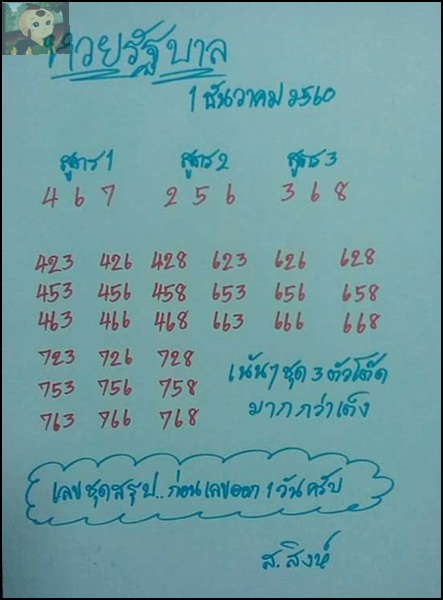 หวยรัฐบาล
1 ธันวาคม 2560
สูตร 1 สูตร 2 สูตร 3
4 6 7 2 5 6 3 6 8
423 426 428 623 626 628
453 456 458 653 656 658
463 466 468 663 666 668
723 726 728
753 756 758
763 766 768
เน้นๆ ชุด 3 ตัวโต๊ด
มากกว่าเต็ง
เลขชุดสรุป.. ก่อนเลขออก 1 วันครับ
ส. สิงห์